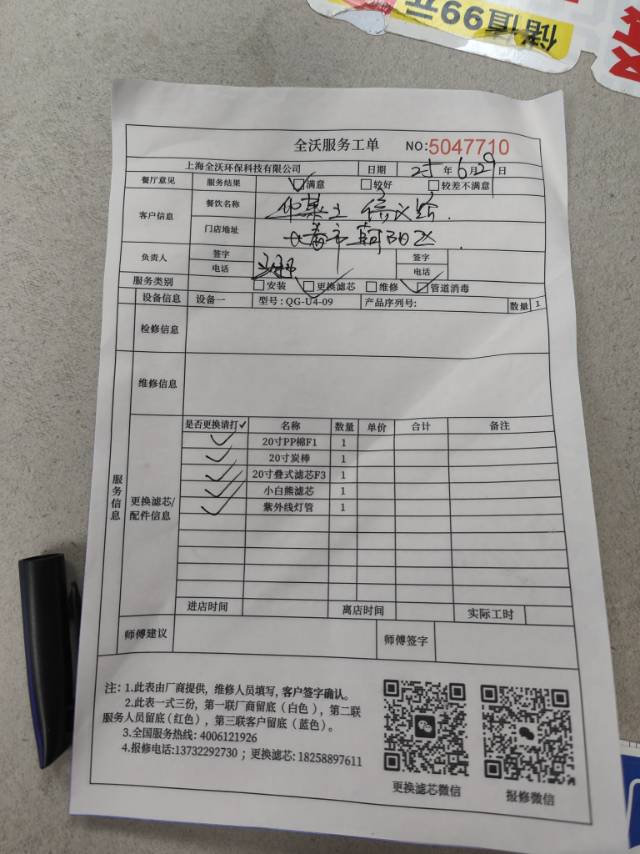 储值99元
全沃服务工单 NO:5047710
上海全沃环保科技有限公司 日期 年6月29日
餐厅意见 服务结果 ✓满意 较好 较差不满意
客户信息 餐饮名称
门店地址 长春市朝阳区
负责人 签字 签字
电话 电话
服务类别 安装 ✓更换滤芯 维修 ✓管道消毒
设备信息 设备一 型号:QG-U4-09 产品序列号: 数量 1
检修信息
维修信息
服务信息
更换滤芯/配件信息
是否更换请打✓ 名称 数量 单价 合计 备注
✓ 20寸PP棉F1 1
✓ 20寸炭棒 1
✓ 20寸叠式滤芯F3 1
✓ 小白熊滤芯 1
✓ 紫外线灯管 1
进店时间 离店时间 实际工时
师傅建议 师傅签字
注:1.此表由厂商提供,维修人员填写,客户签字确认。
2.此表一式三份,第一联厂商留底(白色),第二联
服务人员留底(红色),第三联客户留底(蓝色)。
3.全国服务热线: 4006121926
4.报修电话:13732292730 ; 更换滤芯: 18258897611
更换滤芯微信 报修微信